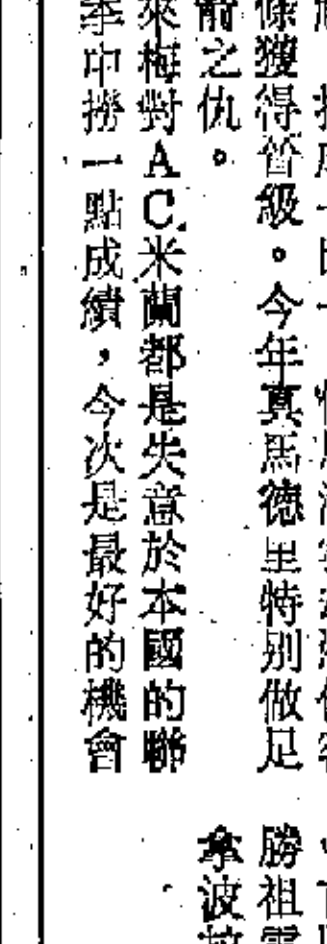 條獲得晉級。今年真馬德里特别做足
前之仇。
來梅對AC米蘭都是失意於本國的聯
季中撈一點成績，今次是最好的機會
勝祖雲
拿波